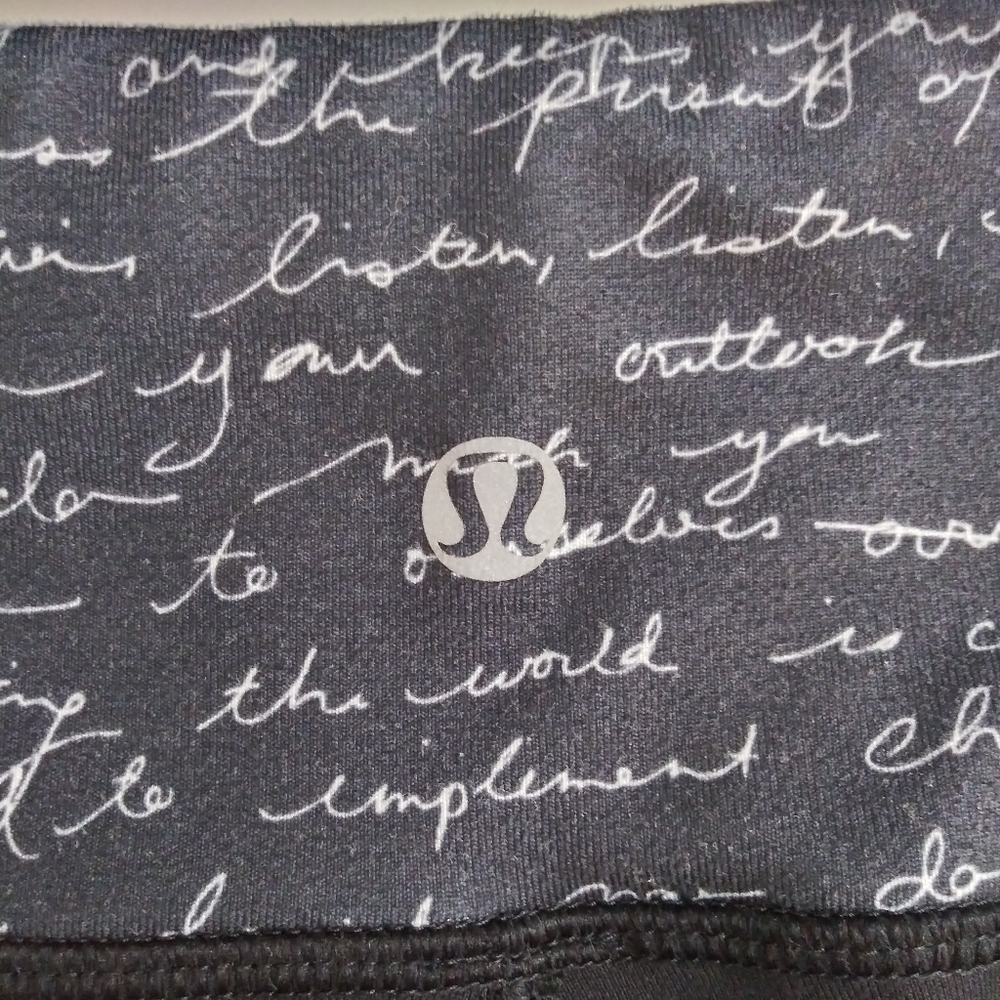 and keeps you
ss the pursuit of
listen, listen,
your outlook
much you
to ourselves
the world is c
to implement ch
do